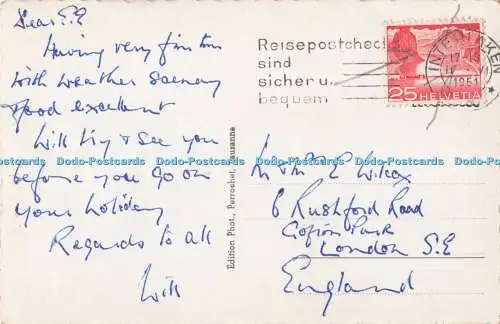 Dear E.E
Having very fine time
with weather scenery
food excellent
Will try & see you
before you go on
your holiday
Regards to all
Will
Edition Phot. Perrochet, Lausanne
Reisepostcheck
sind
sicher u.
bequem
INTERLAKEN
1951
25 HELVETIA
Mr & Mrs E Wilcox
6 Rushford Road
Crofton Park
London S.E
England
Dodo-Postcards Dodo-Postcards Dodo-Postcards Dodo-Postcards